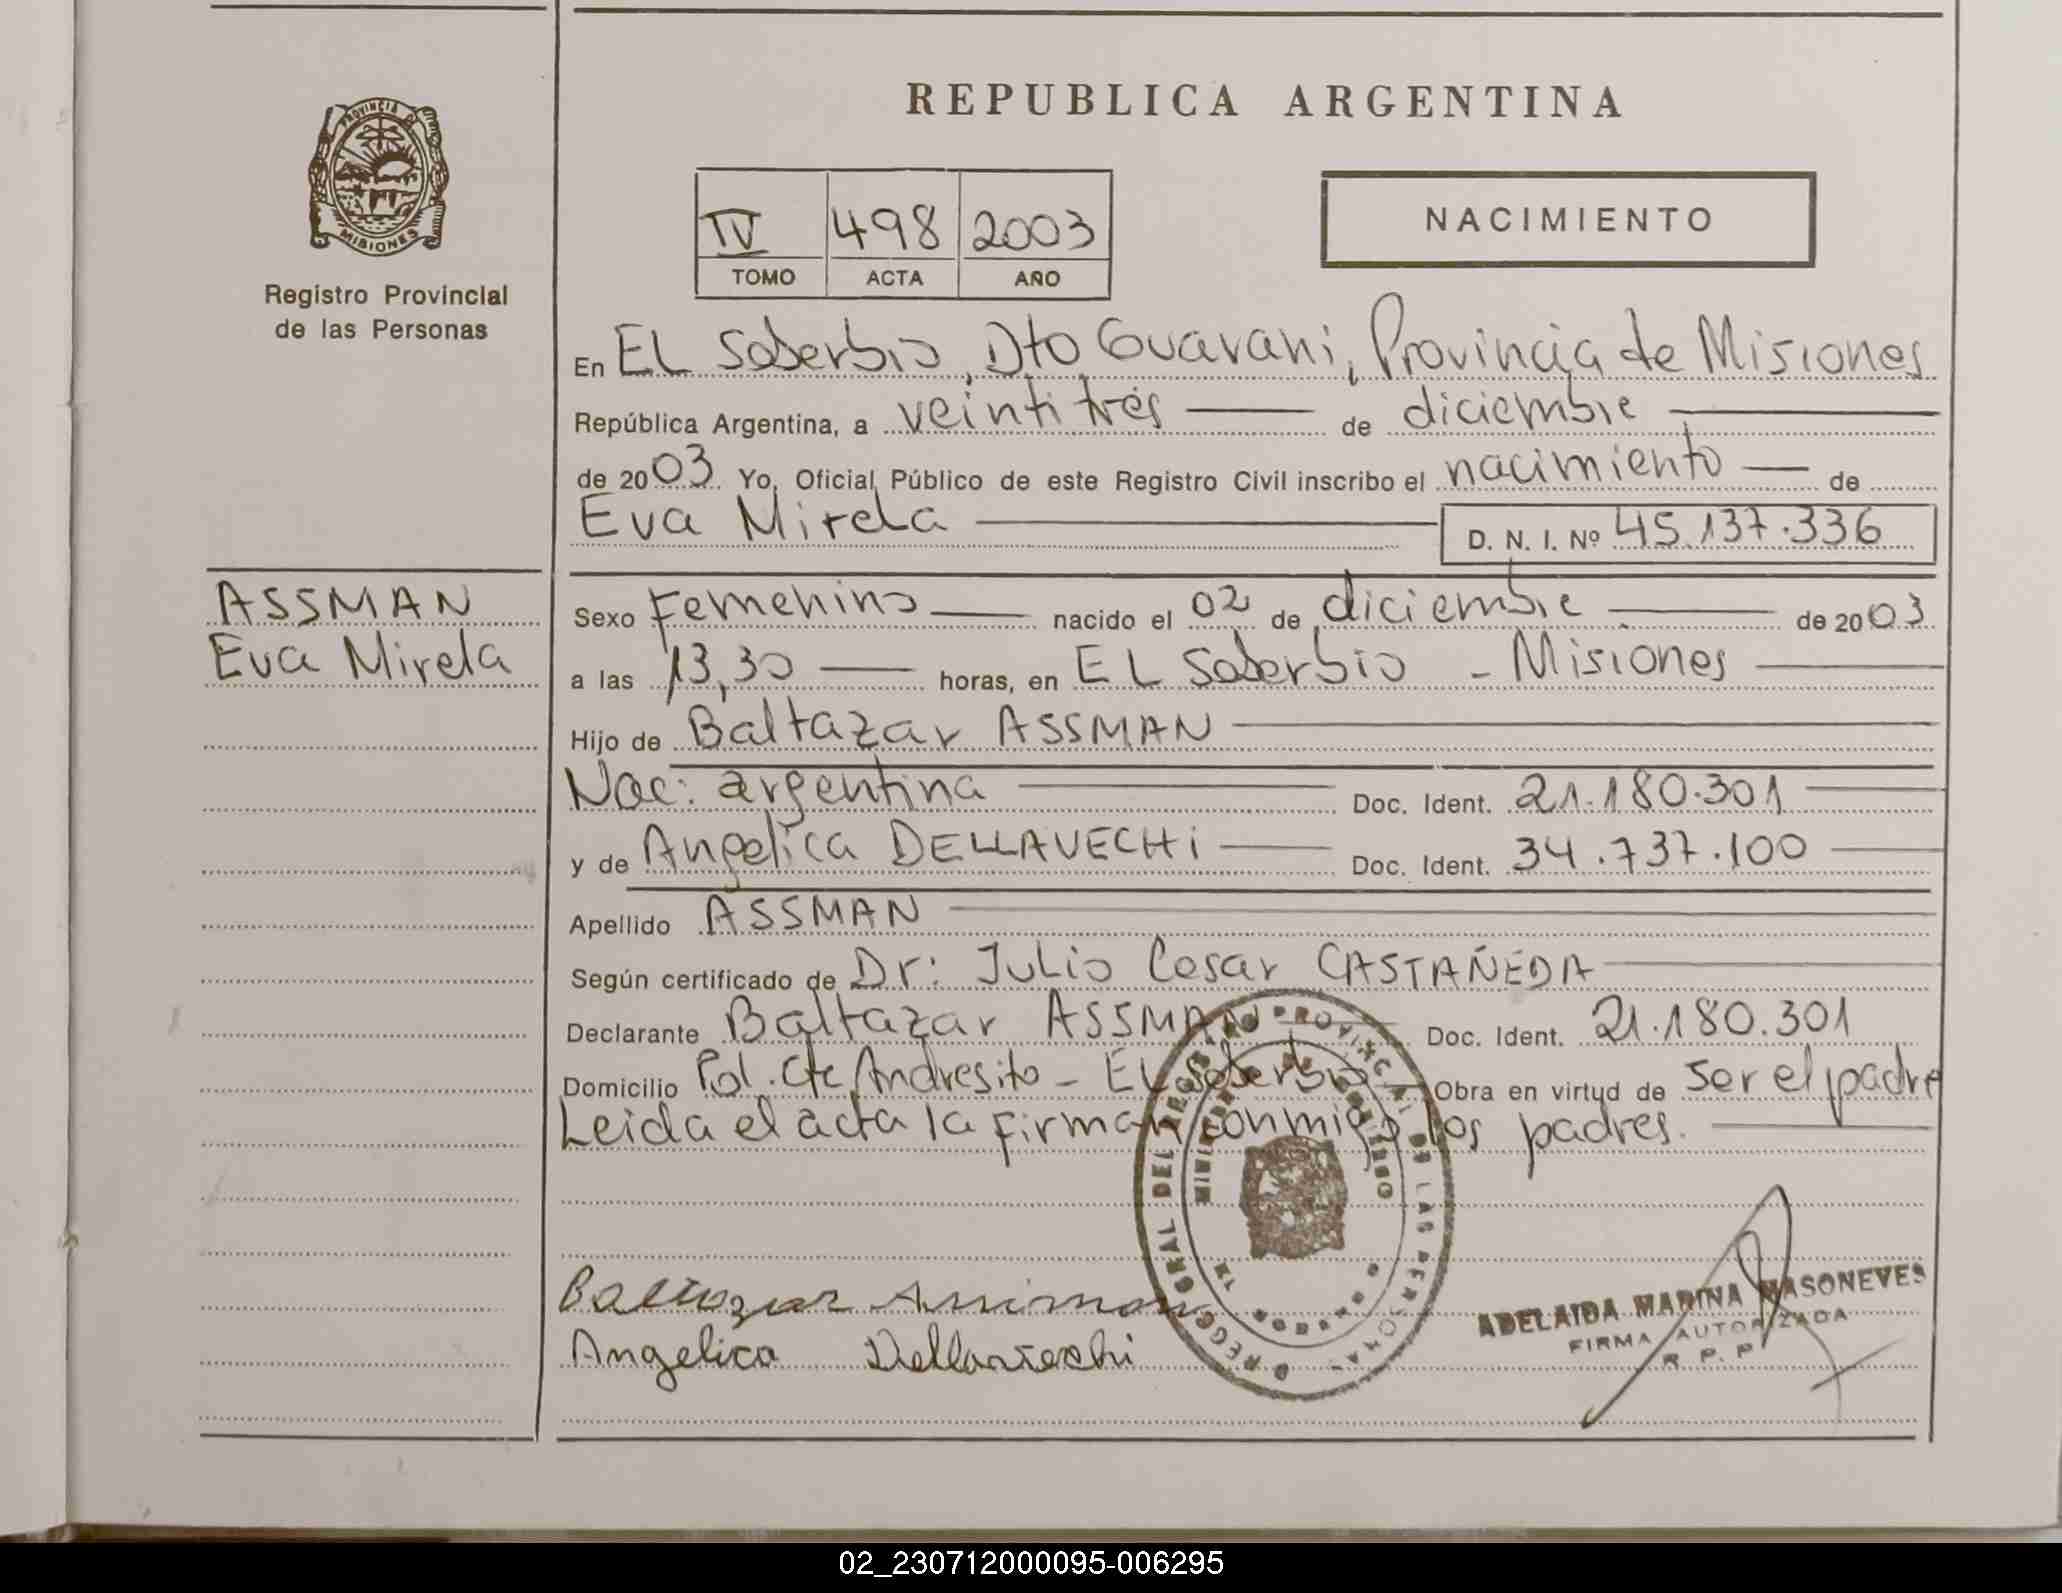 REPUBLICA ARGENTINA
PROVINCIA DE
MISIONES
Registro Provincial
de las Personas
IV 498 2003
TOMO ACTA AÑO
NACIMIENTO
En EL Soberbio, Dto Guarani, Provincia de Misiones
República Argentina, a veintitrés de diciembre
de 2003. Yo, Oficial Público de este Registro Civil inscribo el nacimiento de
Eva Mirela D. N. I. Nº 45.137.336
ASSMAN
Eva Mirela
Sexo Femenino nacido el 02 de diciembre de 2003
a las 13,30 horas, en EL Soberbio - Misiones
Hijo de Baltazar ASSMAN
Nac: argentina Doc. Ident. 21.180.301
y de Angelica DELLAVECHi Doc. Ident. 34.737.100
Apellido ASSMAN
Según certificado de Dr: Julio Cesar CASTAÑEDA
Declarante Baltazar ASSMAN Doc. Ident. 21.180.301
Domicilio Pol. Cte Andresito - EL Soberbio Obra en virtud de ser el padre
Leida el acta la firman conmigo los padres.
Baltazar Assman
Angelica Dellavechi
PROVINCIAL DE LAS PERSONAS
ADELAIDA MARINA MASONEVES
FIRMA AUTORIZADA
R. P. P.
02_230712000095-006295